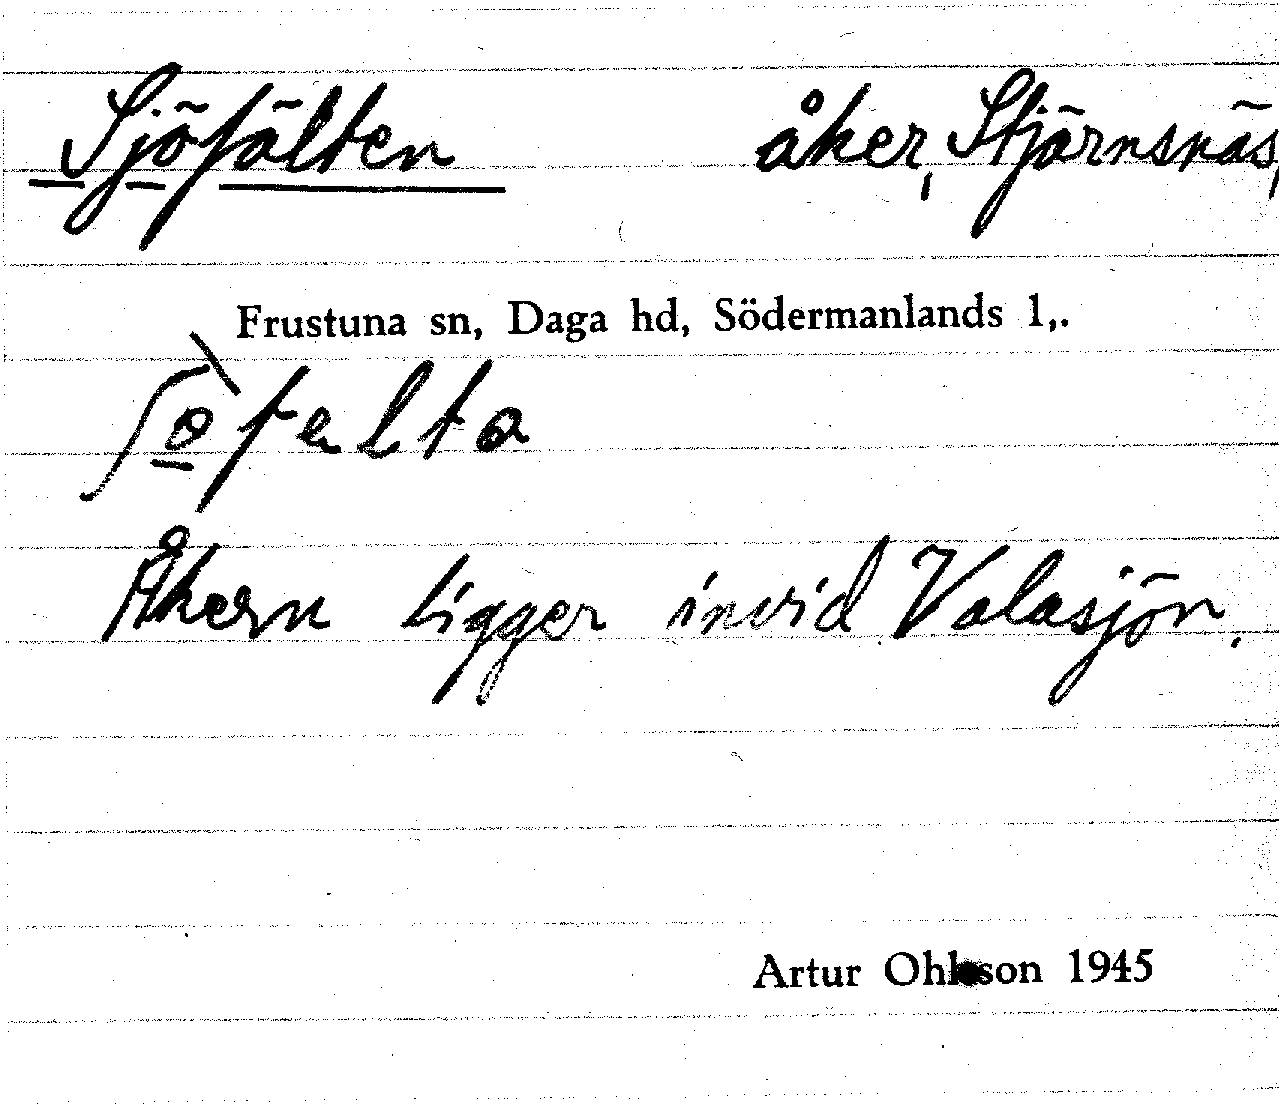 Sjöfälten åker, Stjärnsnäs,
Frustuna sn, Daga hd, Södermanlands l,.
ʃø̀fælta
Åkern ligger invid Valasjön.
Artur Ohlsson 1945